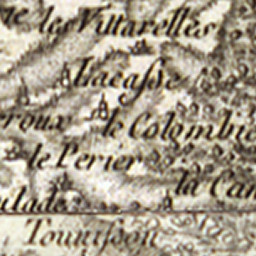 les Vittarelles
Lacasse
roux le Colombie
le Perier
la Can
ulade
Tournisson